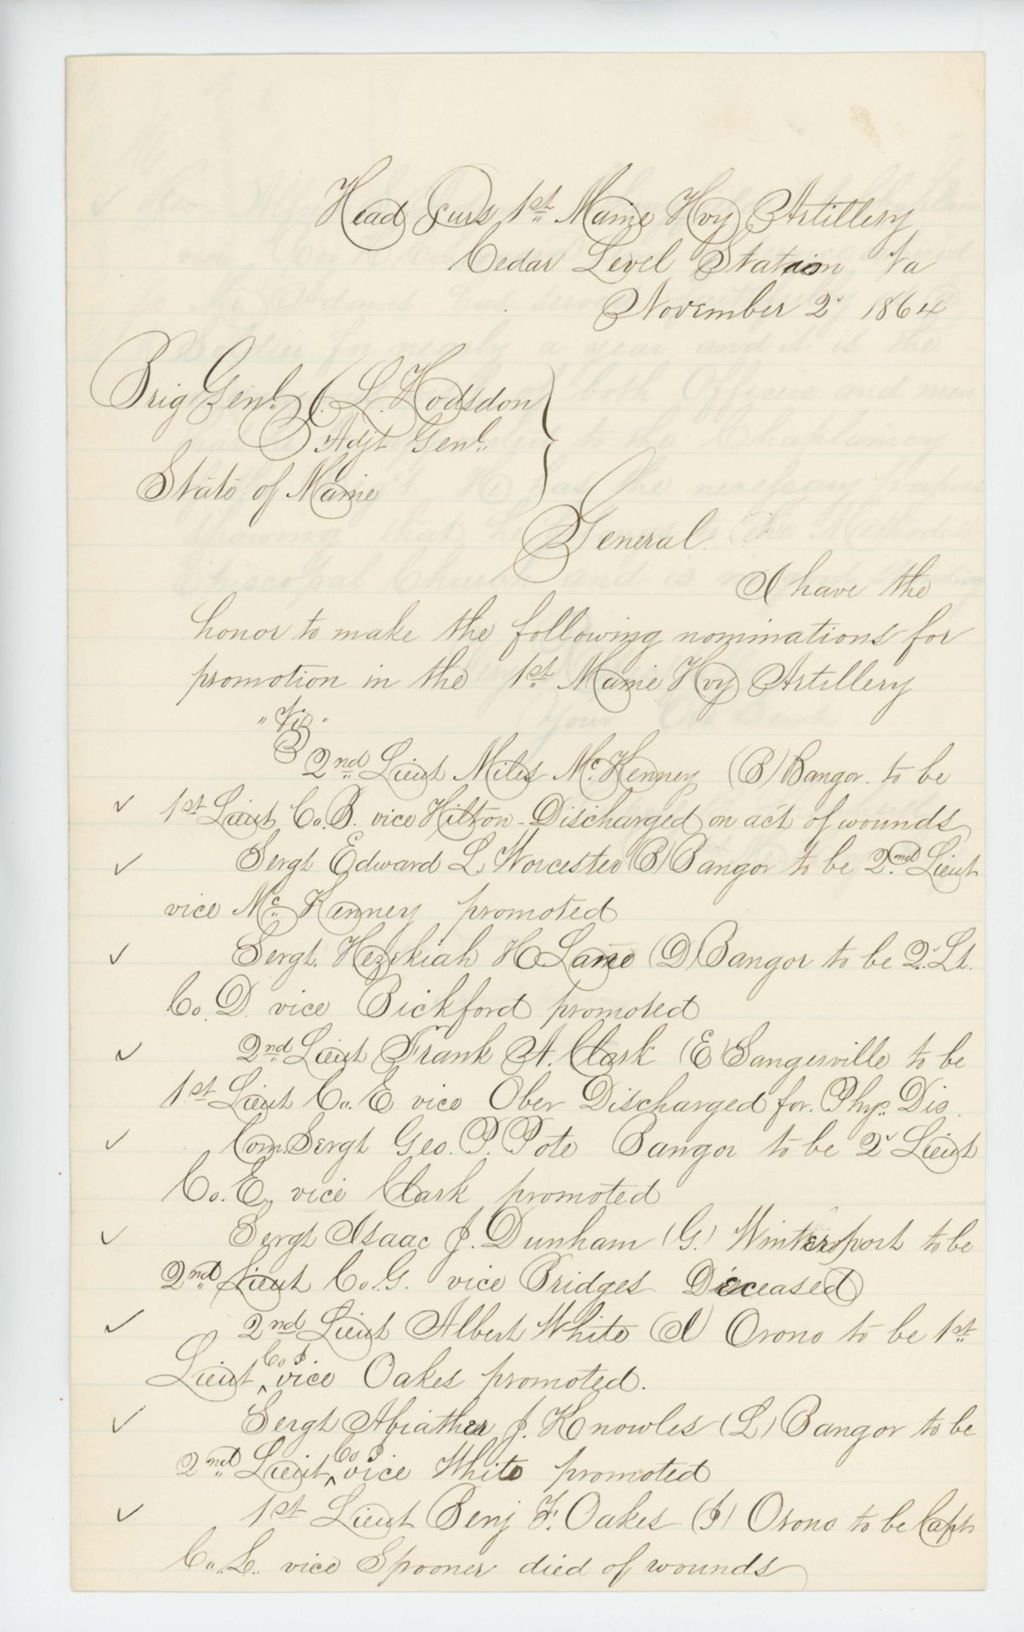 Head Qurs 1st Maine Hvy Artillery
Cedar Level Station Va
November 2d 1864
Brig Genl. J. L. Hodsdon
Adjt Genl.
State of Maine
General
I have the
honor to make the following nominations for
promotion in the 1st Maine Hvy Artillery
"Viz"
2nd Lieut Miles McKenney (B) Bangor to be
✓ 1st Lieut Co. B. vice Hilton - Discharged on act of wounds
✓ Sergt Edward L Worcester (B) Bangor to be 2nd Lieut
vice McKenney promoted
✓ Sergt. Hezekiah H Lane (D) Bangor to be 2d Lt.
Co. D. vice Bickford promoted
✓ 2nd Lieut Frank A. Clark (E) Sangerville to be
1st Lieut Co. E vice Ober Discharged for Phys. Dis.
✓ Com. Sergt Geo. P. Pote Bangor to be 2d Lieut
Co. E, vice Clark promoted
✓ Sergt Isaac J. Dunham (G.) Winterport to be
2nd Lieut Co. G. vice Bridges Deceased
✓ 2nd Lieut Albert White (I) Orono to be 1st
Lieut Co I vice Oakes promoted.
✓ Sergt Abiather J. Knowles (L) Bangor to be
2nd Lieut Co I vice White promoted
✓ 1st Lieut Benj F. Oakes (I) Orono to be Capt
Co. L. vice Spooner died of wounds